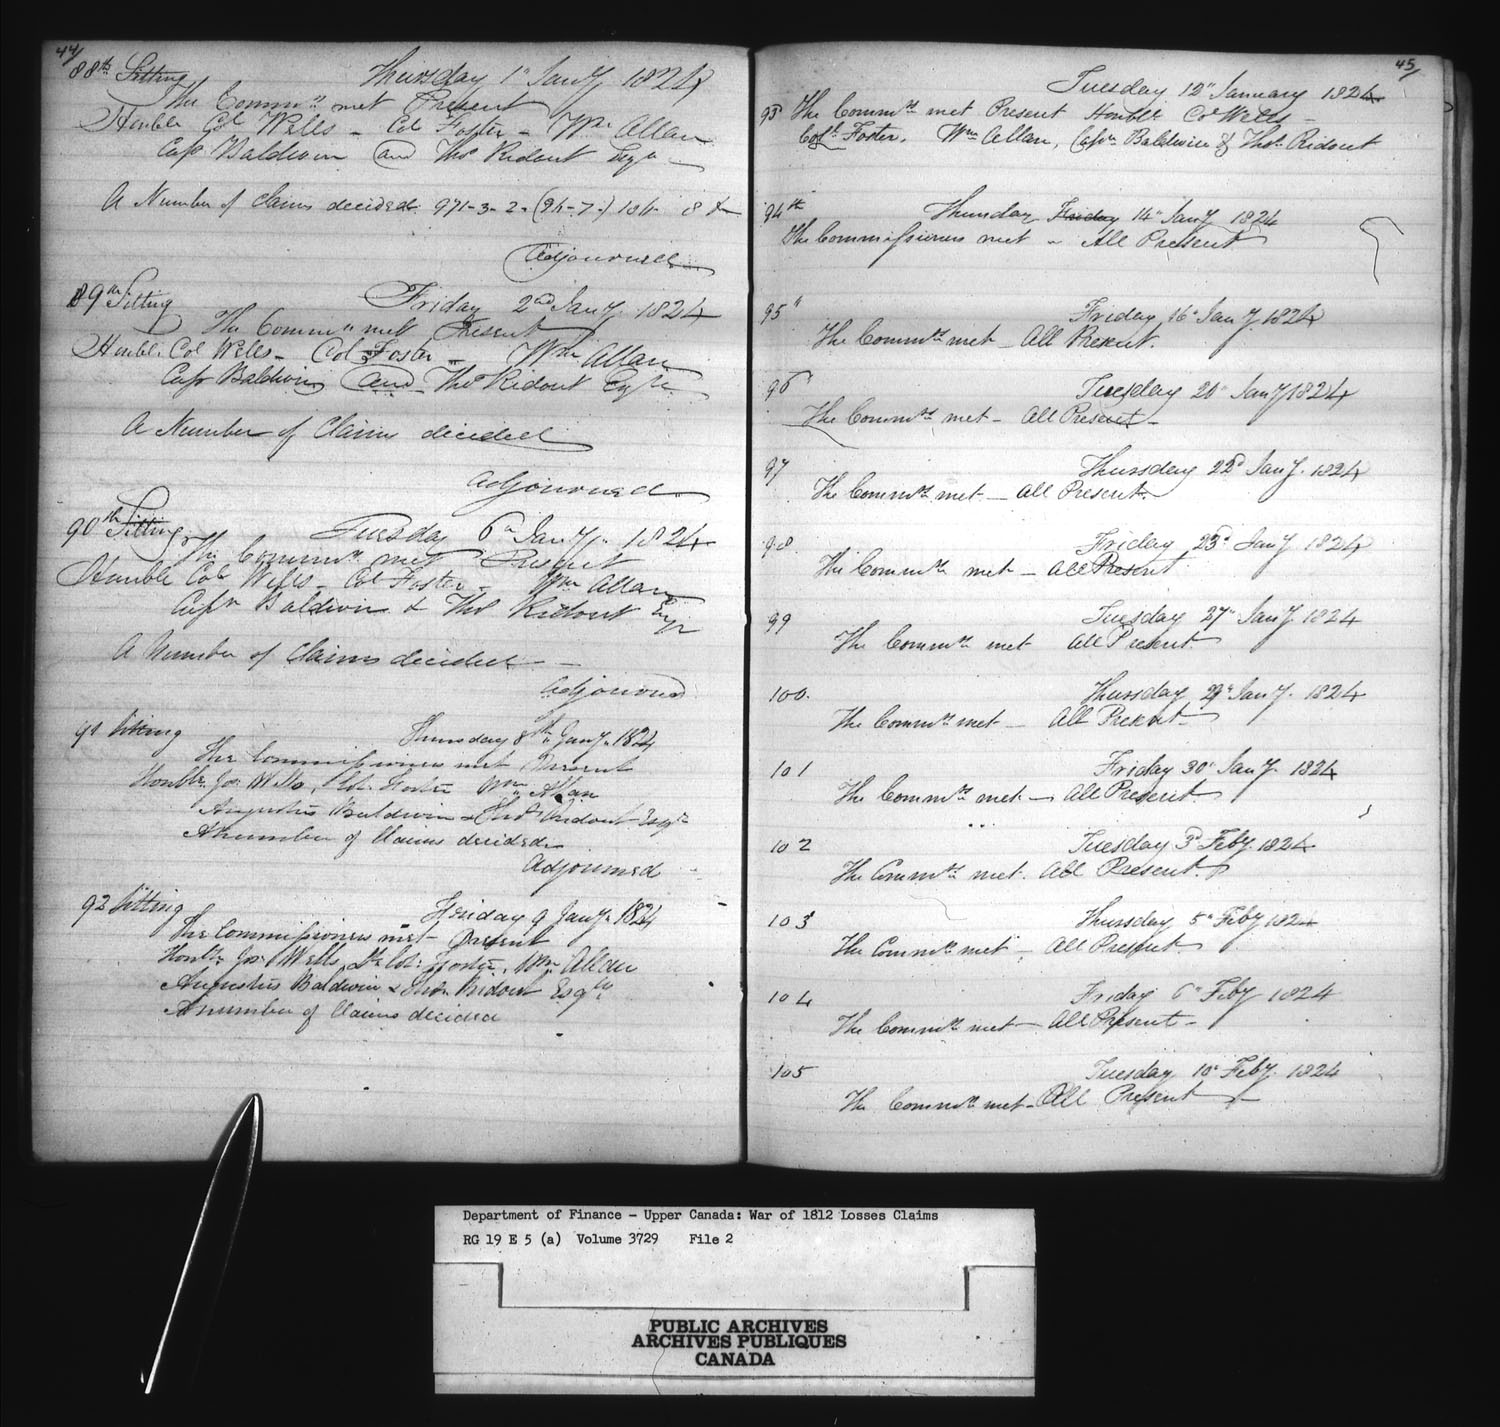 44/
88th Sitting Thursday 1st Jany 1824
The Commrs met Present
Honble Col Wells – Col Foster – Wm Allan
Capt Baldwin and Thos Ridout Esqrs
A Number of Claims decided 971-3-2
Adjourned
89th Sitting Friday 2nd Jany 1824
The Commrs met Present
Honble Col Wells – Col Foster – Wm Allan
Capt Baldwin and Thos Ridout Esqrs
A Number of Claims decided
Adjourned
90th Sitting Tuesday 6th Jany 1824
The Commrs met Present
Honble Col Wells – Col Foster – Wm Allan
Captn Baldwin & Thos Ridout Esqrs
A Number of Claims decided –
Adjourned
91 Sitting Thursday 8th Jany 1824
The Commissioners met Present
Honble Jos Wells, Col. Foster Wm Allan
Augustus Baldwin & Thos Ridout Esqrs
A number of Claims decided
Adjourned
92 Sitting Friday 9 Jany 1824
The Commissioners met – Present
Honble Jos Wells, Lt Col: Foster, Wm Allan
Augustus Baldwin & Thos. Ridout Esqrs
A number of Claims decided
45/
Tuesday 12th January 1824
93 The Commrs met Present Honble Col Wells –
Colo Foster, Wm Allan, Captn Baldwin & Thos Ridout
94th Thursday Friday 14th Jany 1824
The Commissioners met – All Present
95th Friday 16th Jany 1824
The Commrs met – All Present.
96 Tuesday 20th Jany 1824
The Commrs met – All Present –
97 Thursday 22d Jany. 1824
The Commrs met – All Present.
98 Friday 23d Jany 1824
The Commrs met – All Present
99 Tuesday 27th Jany 1824
The Commrs met All Present.
100. Thursday 29th Jany. 1824
The Commrs met – All Present –
101 Friday 30th Jany. 1824
The Commrs met – All Present
102 Tuesday 3d Feby. 1824
The Commrs met. All Present.
103 Thursday 5th Feby 1824
The Commrs met – All Present
104 Friday 6th Feby 1824
The Commrs met – All Present –
105 Tuesday 10th Feby. 1824
The Commrs met – All Present –
Department of Finance - Upper Canada: War of 1812 Losses Claims
RG 19 E 5 (a) Volume 3729 File 2
PUBLIC ARCHIVES
ARCHIVES PUBLIQUES
CANADA